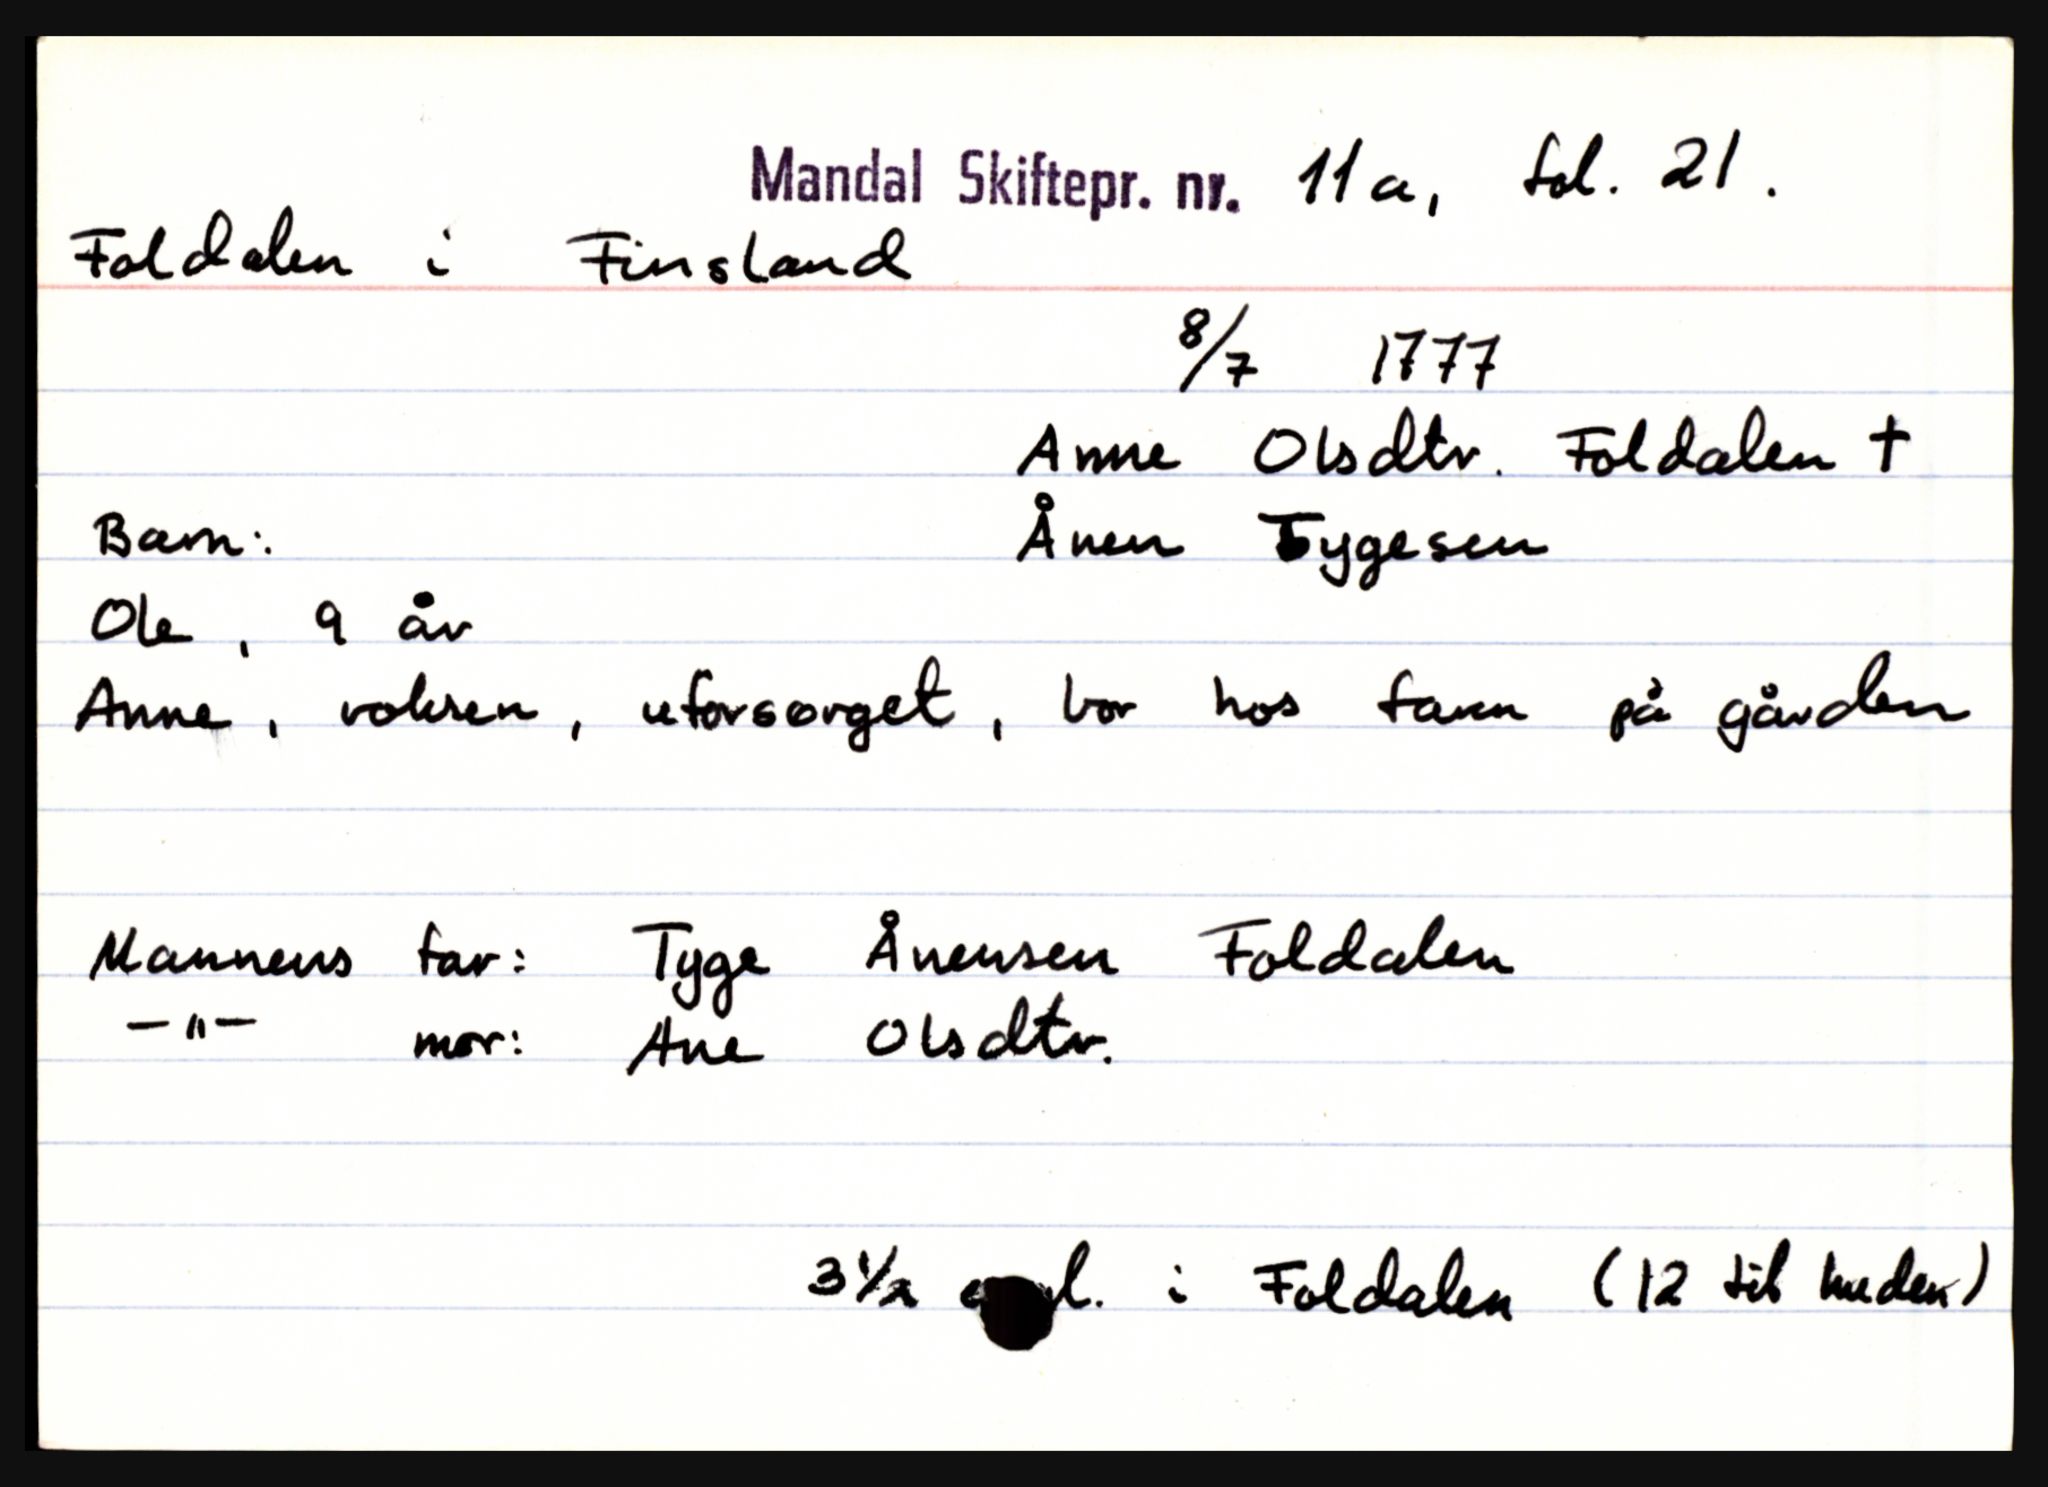 Mandal Skiftepr. nr. 11a, fol. 21.
Foldalen i Finsland
8/7 1777
Anne Olsdtr. Foldalen †
Barn: Ånen Tygesen
Ole, 9 år
Anne, voksen, uforsørget, bor hos faren på gården
Mannens far: Tyge Ånensen Foldalen
—"— mor: Ane Olsdtr.
3 1/2 i Foldalen (12 til huden)